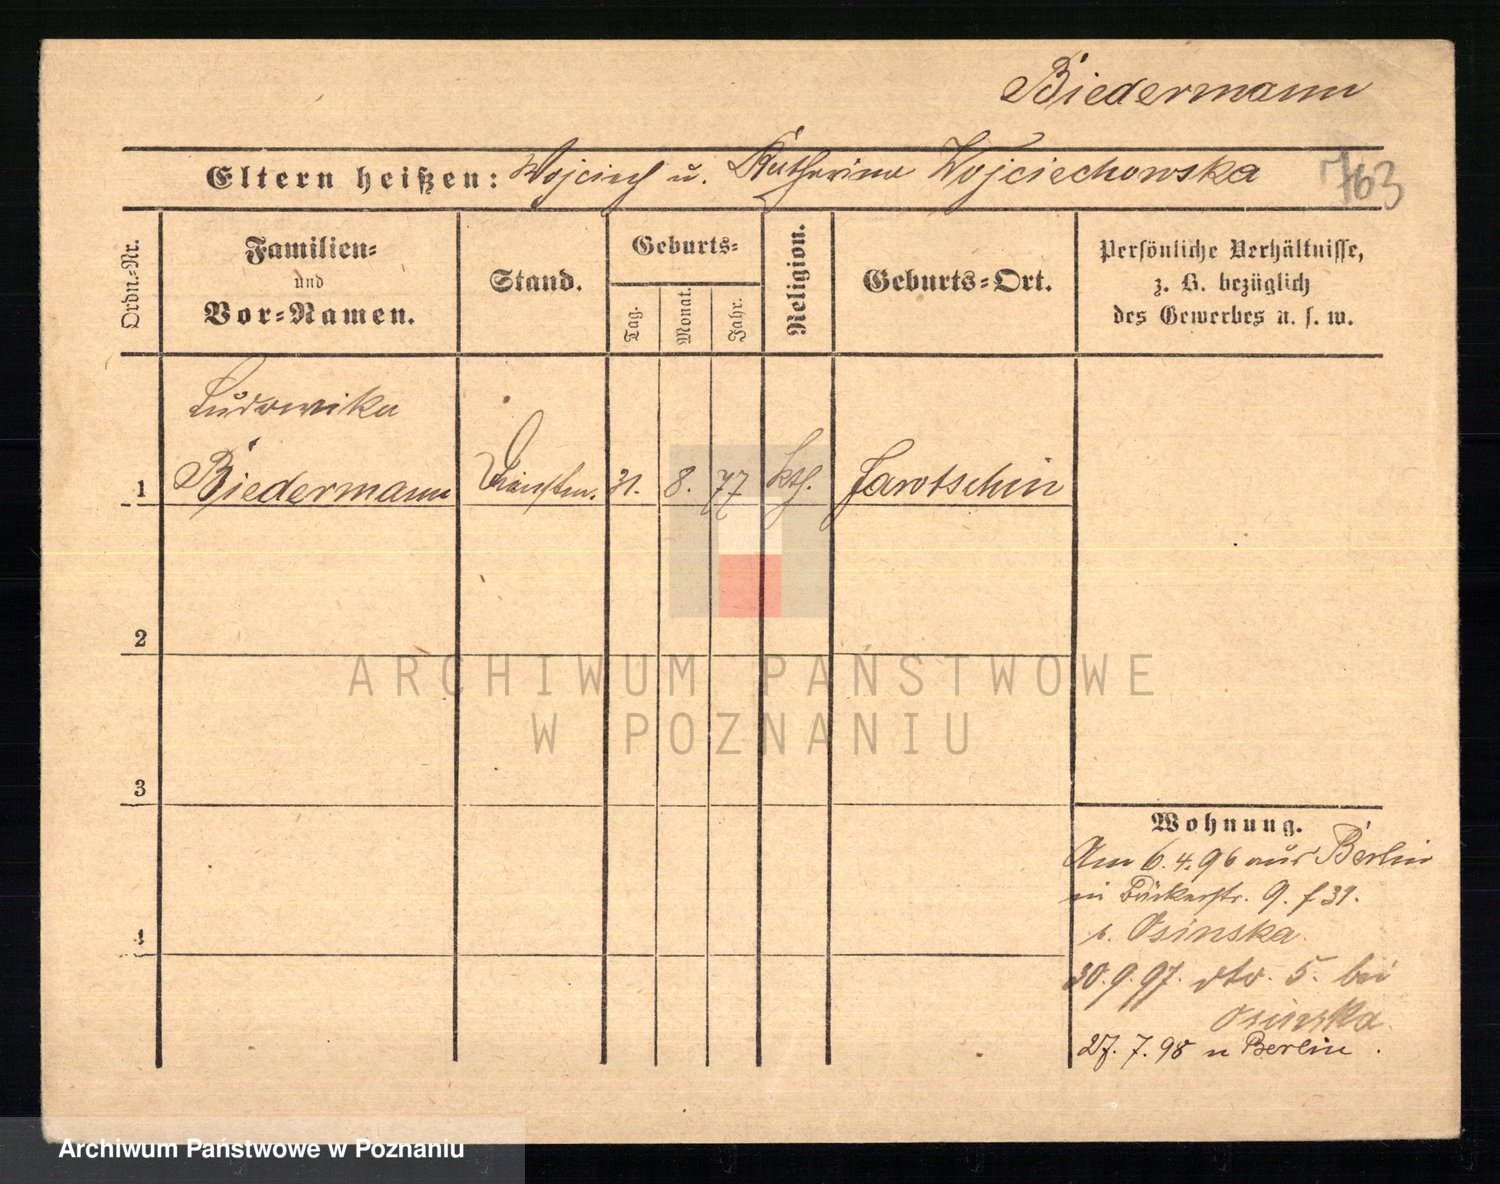 Biedermann
Eltern heißen: Wojciech u. Katharina Wojciechowska
763
Ordn.-Nr.
Familien-
und
Vor-Namen.
Stand.
Geburts-
Tag.
Monat.
Jahr.
Religion.
Geburts-Ort.
Persönliche Verhältnisse,
z. B. bezüglich
des Gewerbes u. s. w.
Ludowika
1 Biedermann 31. 8. 77 kth. Jarotschin
2
3
4
Wohnung.
Am 6.4.96 aus Berlin
in Bäckerstr. 9. f 31.
b. Osinska.
30.9.97. dto. 5. bei
Osinska
27. 7. 98 n Berlin.
ARCHIWUM PAŃSTWOWE
W POZNANIU
Archiwum Państwowe w Poznaniu